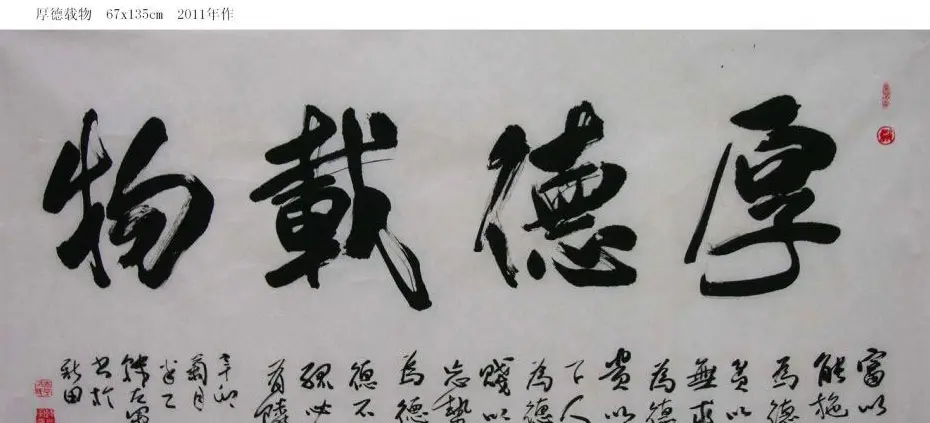 厚德载物 67x135cm 2011年作
厚德載物
富以
能施
為德
貧以
無求
為德
貴以
下人
為德
賤以
忘勢
為德
德不
孤必
有隣
辛卯
菊月
書於
新田